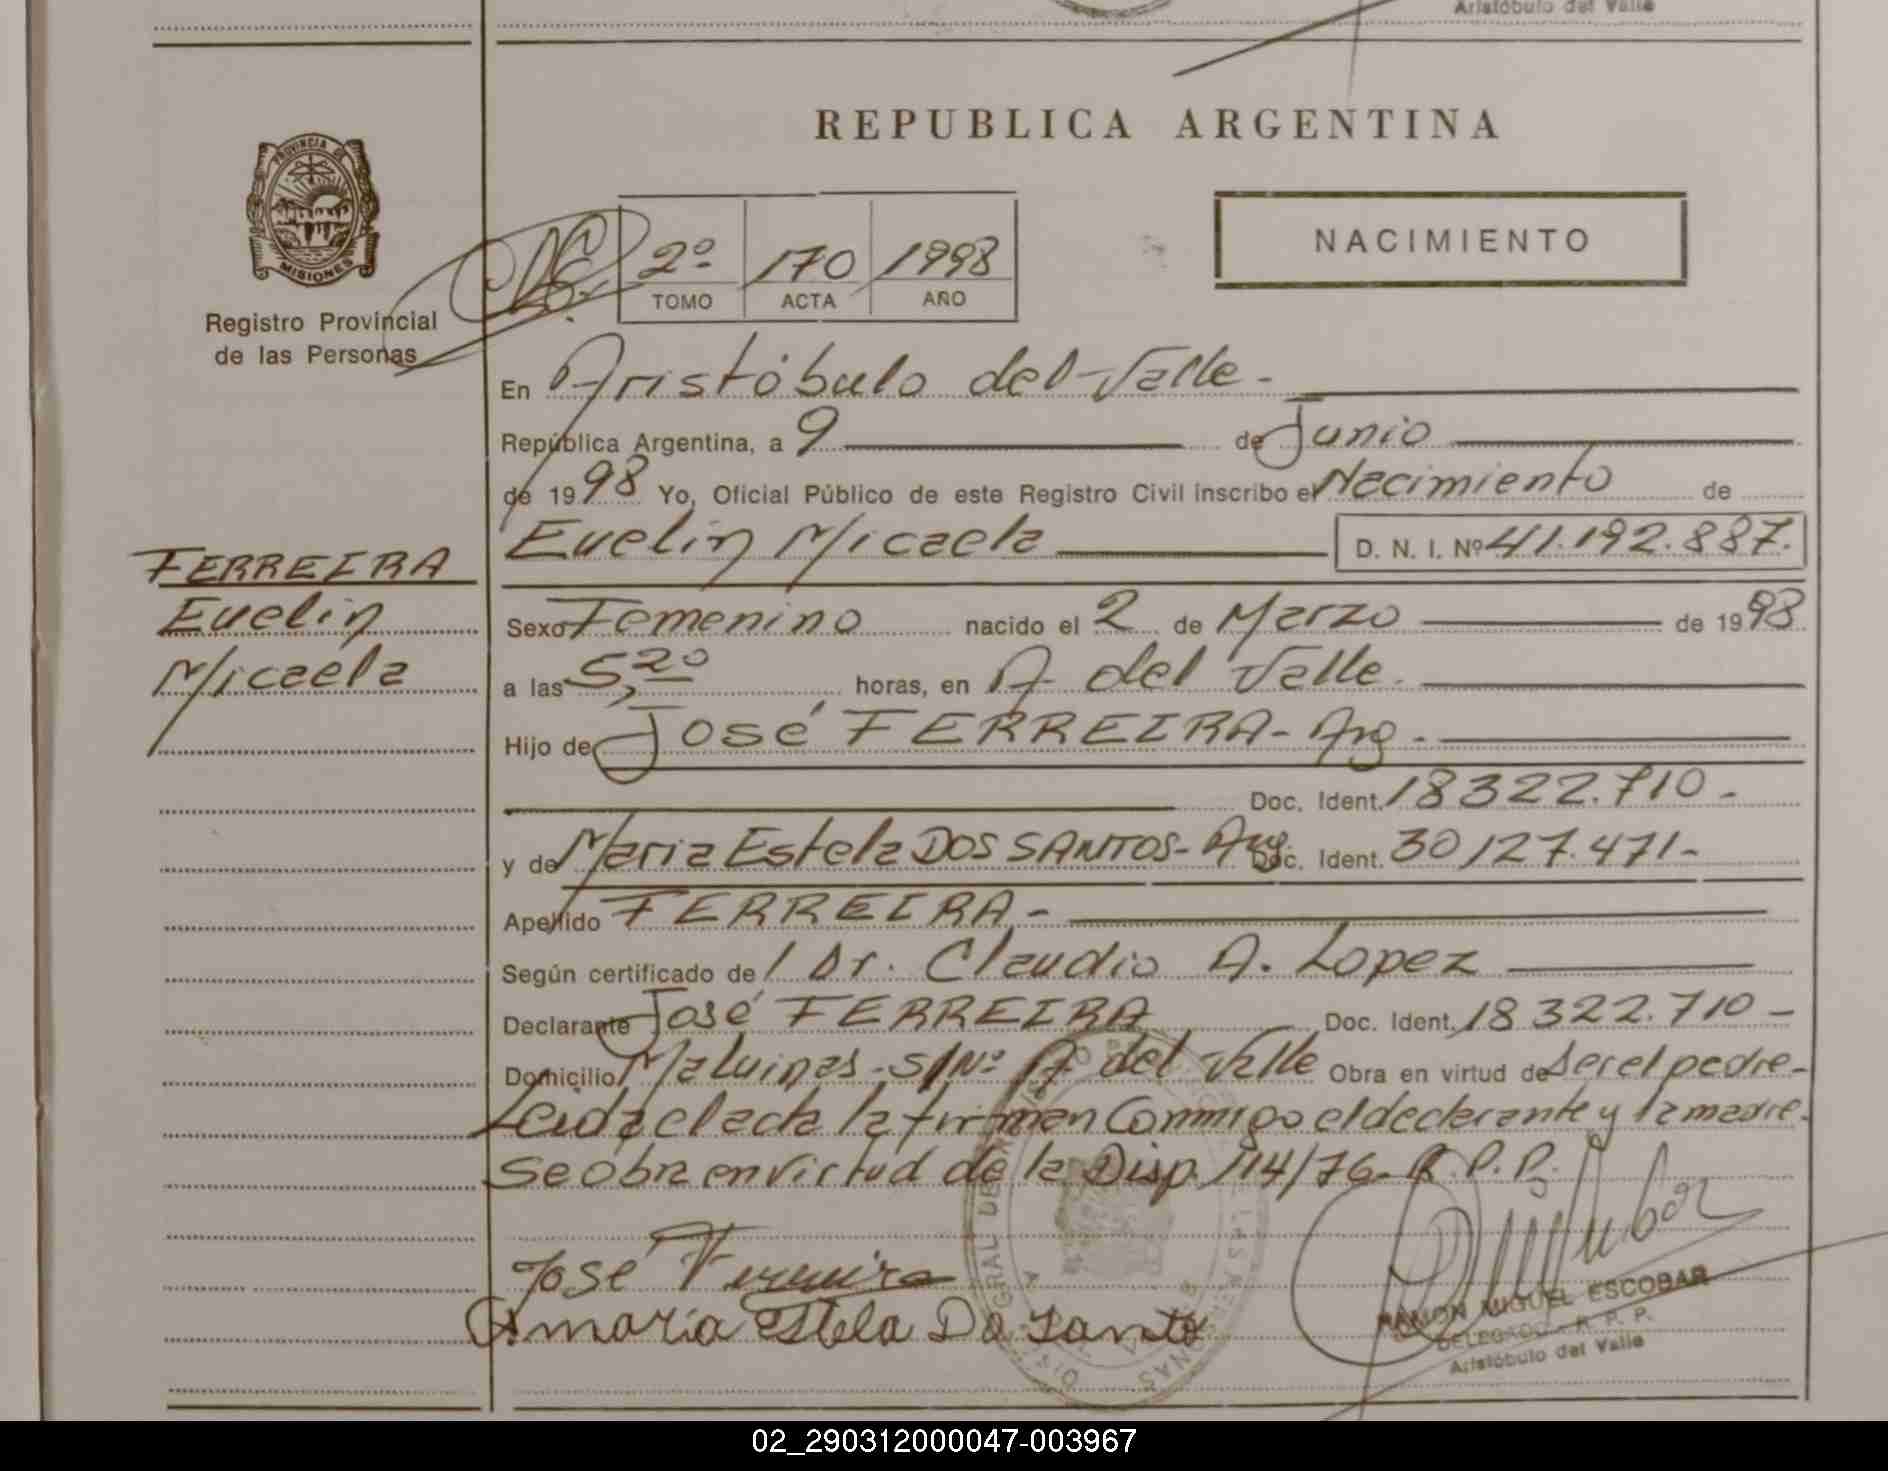 Aristóbulo del Valle
REPUBLICA ARGENTINA
PROVINCIA DE
MISIONES
Registro Provincial
de las Personas
2º 170 1998
TOMO ACTA AÑO
NACIMIENTO
En Aristóbulo del Valle -
República Argentina, a 9 de Junio
de 1998 Yo, Oficial Público de este Registro Civil inscribo el Nacimiento de
Evelin Micaela D. N. I. Nº 41.192.887.
FERREIRA
Evelin
Micaela
Sexo Femenino nacido el 2 de Marzo de 1998
a las 5,20 horas, en A. del Valle.
Hijo de José FERREIRA - Arg -
Doc. Ident. 18322.710 -
y de Maria Estela DOS SANTOS - Arg. Doc. Ident. 30127.471 -
Apellido FERREIRA -
Según certificado de / Dr. Claudio A. Lopez
Declarante José FERREIRA Doc. Ident. 18322.710 -
Domicilio Malvinas - S/Nº A. del Valle Obra en virtud de ser el padre -
Leida el acta la firman Conmigo el declarante y la madre -
Se obra en virtud de la Disp. 114/76 - R.P.P.
José Ferreira
maría Estela Do Santo
RAMON MIGUEL ESCOBAR
DELEGADO - R. P. P.
Aristóbulo del Valle
02_290312000047-003967